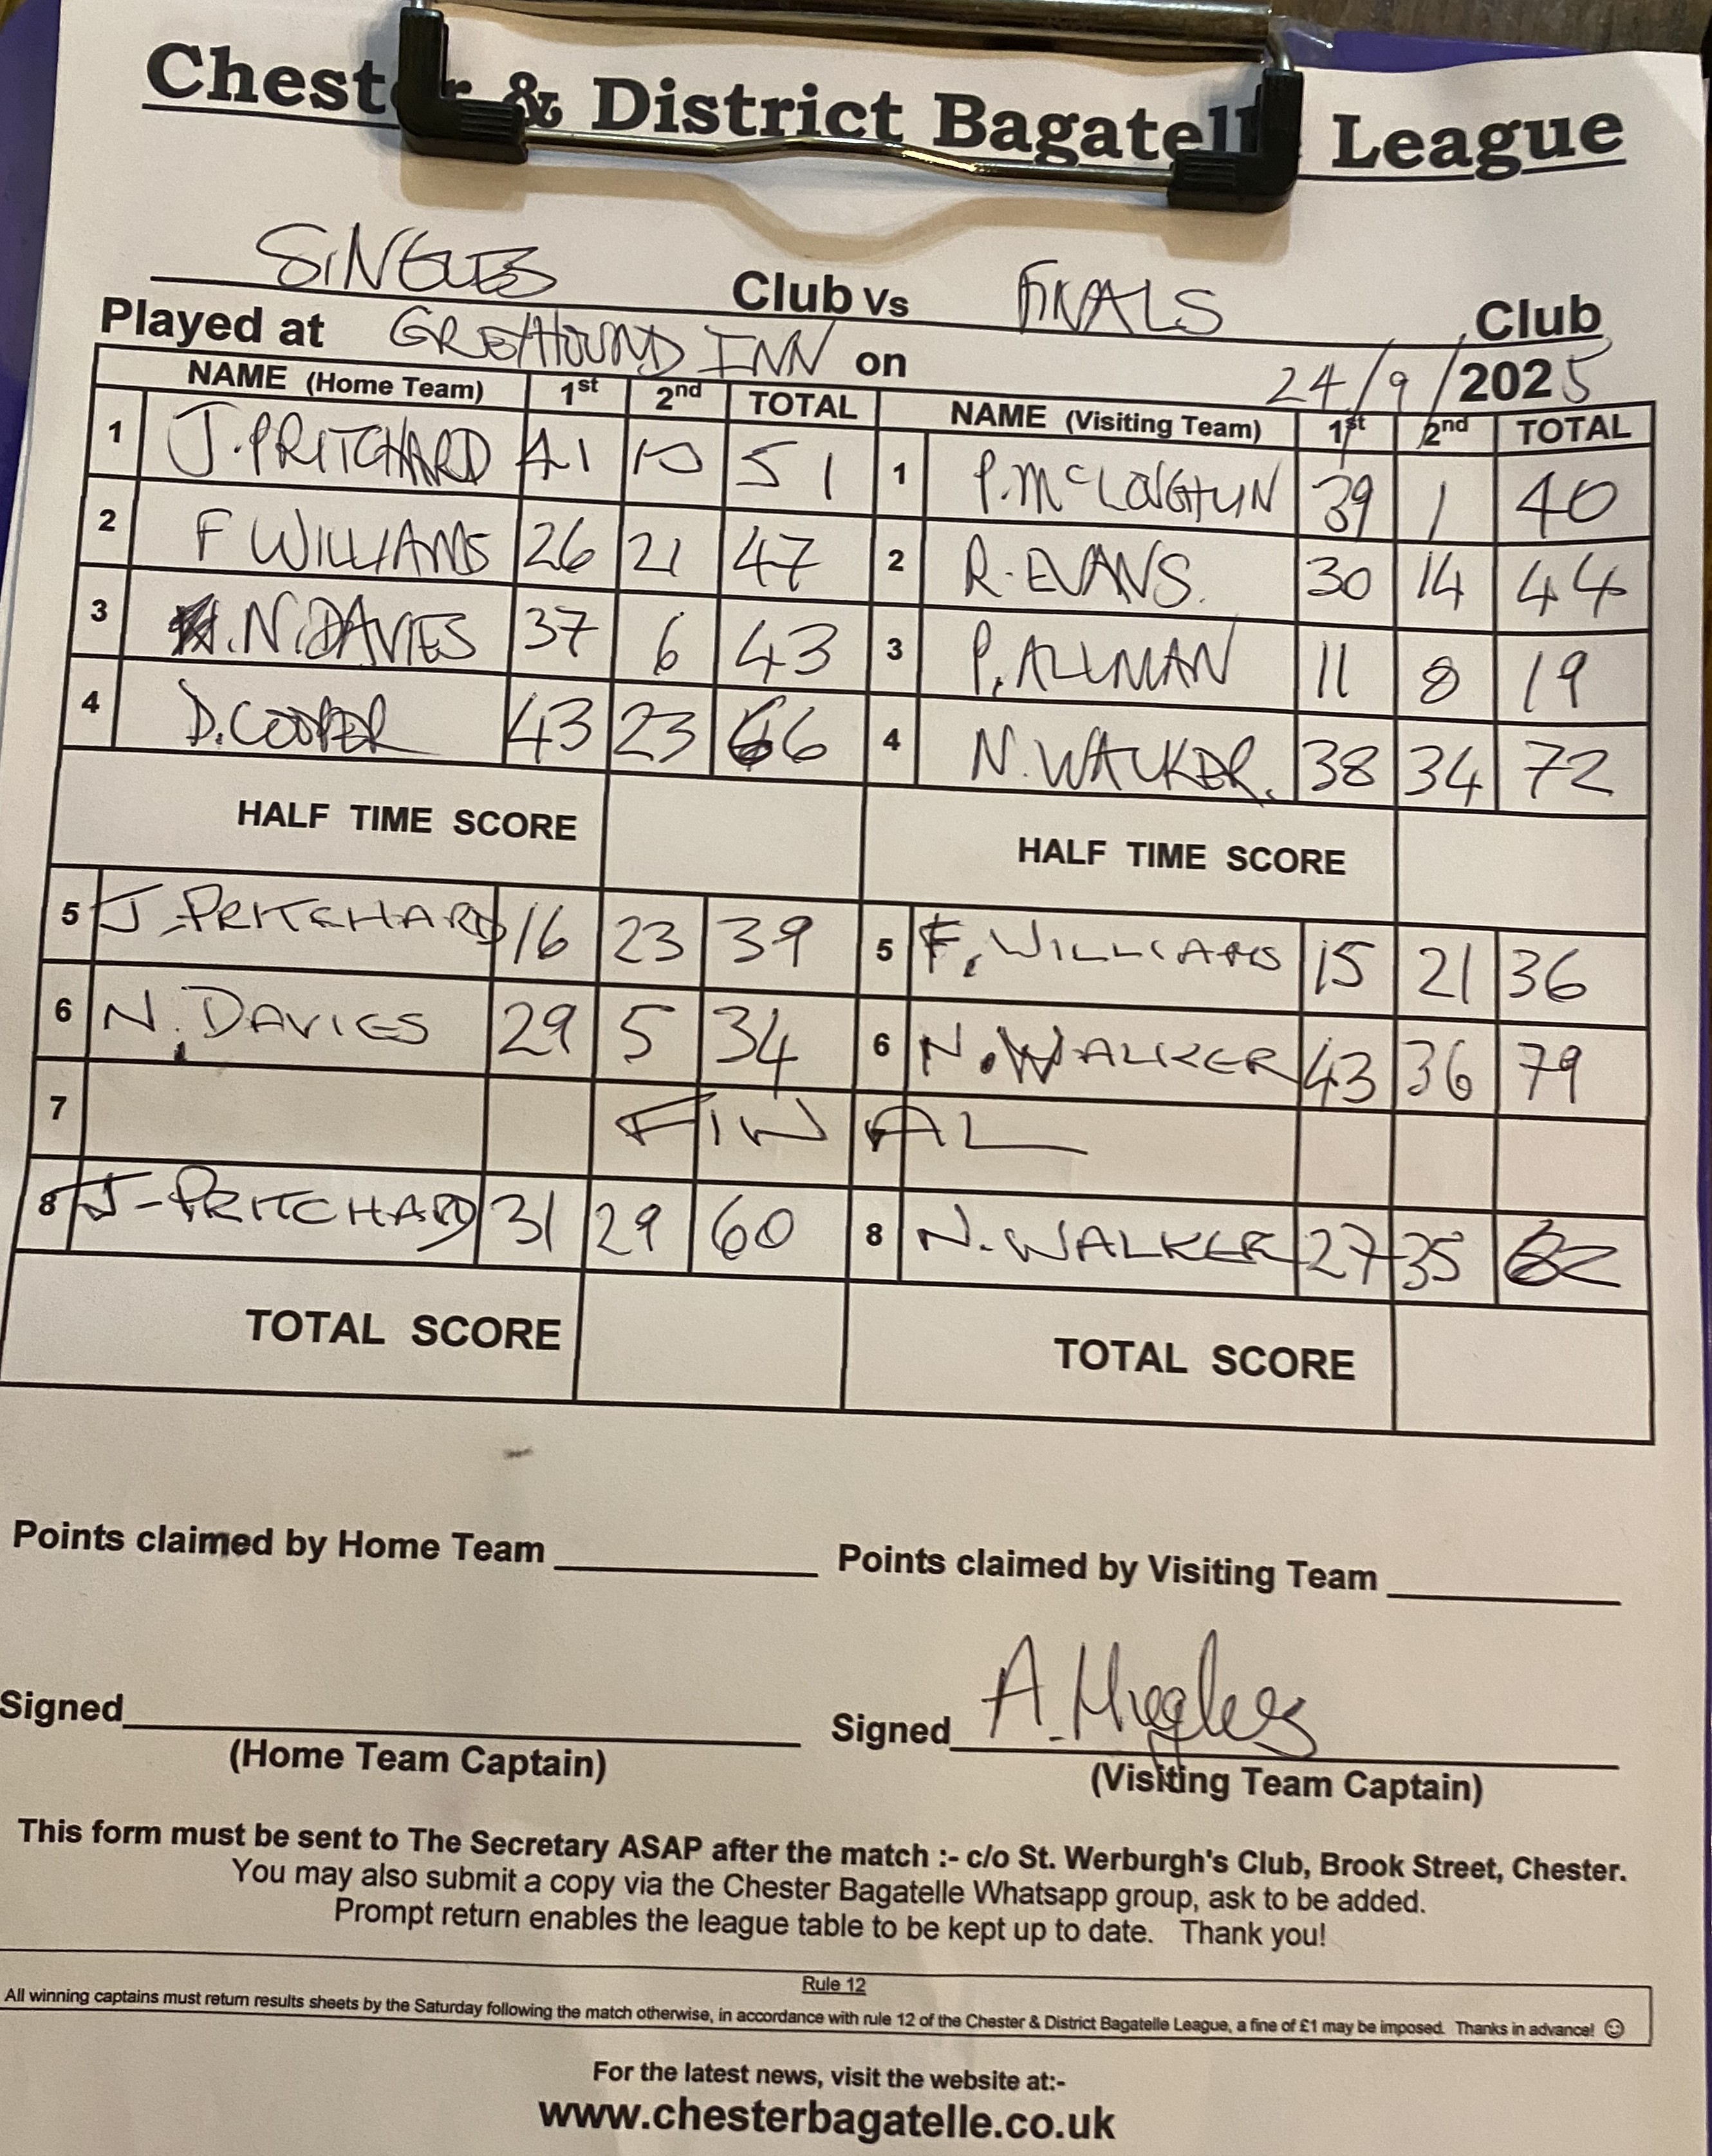 Chester & District Bagatelle League
SINGLES Club Vs FINALS Club
Played at GREYHOUND INN on 24/9/2025
NAME (Home Team) 1st 2nd TOTAL NAME (Visiting Team) 1st 2nd TOTAL
1 J.PRITCHARD 41 10 51 1 P.McLOUGHLIN 39 1 40
2 F WILLIAMS 26 21 47 2 R.EVANS. 30 14 44
3 N.DAVIES 37 6 43 3 P.ALLMAN 11 8 19
4 D.COOPER 43 23 66 4 N.WALKER. 38 34 72
HALF TIME SCORE HALF TIME SCORE
5 J-PRITCHARD 16 23 39 5 F.WILLIAMS 15 21 36
6 N.DAVIES 29 5 34 6 N.WALKER 43 36 79
7 FINAL
8 J-PRITCHARD 31 29 60 8 N.WALKER 27 35 62
TOTAL SCORE TOTAL SCORE
Points claimed by Home Team Points claimed by Visiting Team
Signed Signed A.Hughes
(Home Team Captain) (Visiting Team Captain)
This form must be sent to The Secretary ASAP after the match :- c/o St. Werburgh's Club, Brook Street, Chester.
You may also submit a copy via the Chester Bagatelle Whatsapp group, ask to be added.
Prompt return enables the league table to be kept up to date. Thank you!
Rule 12
All winning captains must return results sheets by the Saturday following the match otherwise, in accordance with rule 12 of the Chester & District Bagatelle League, a fine of £1 may be imposed. Thanks in advance! ☺
For the latest news, visit the website at:-
www.chesterbagatelle.co.uk